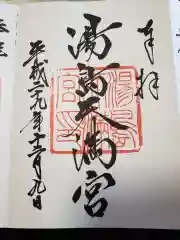 奉拝
湯島天満宮
平成二九年十二月九日